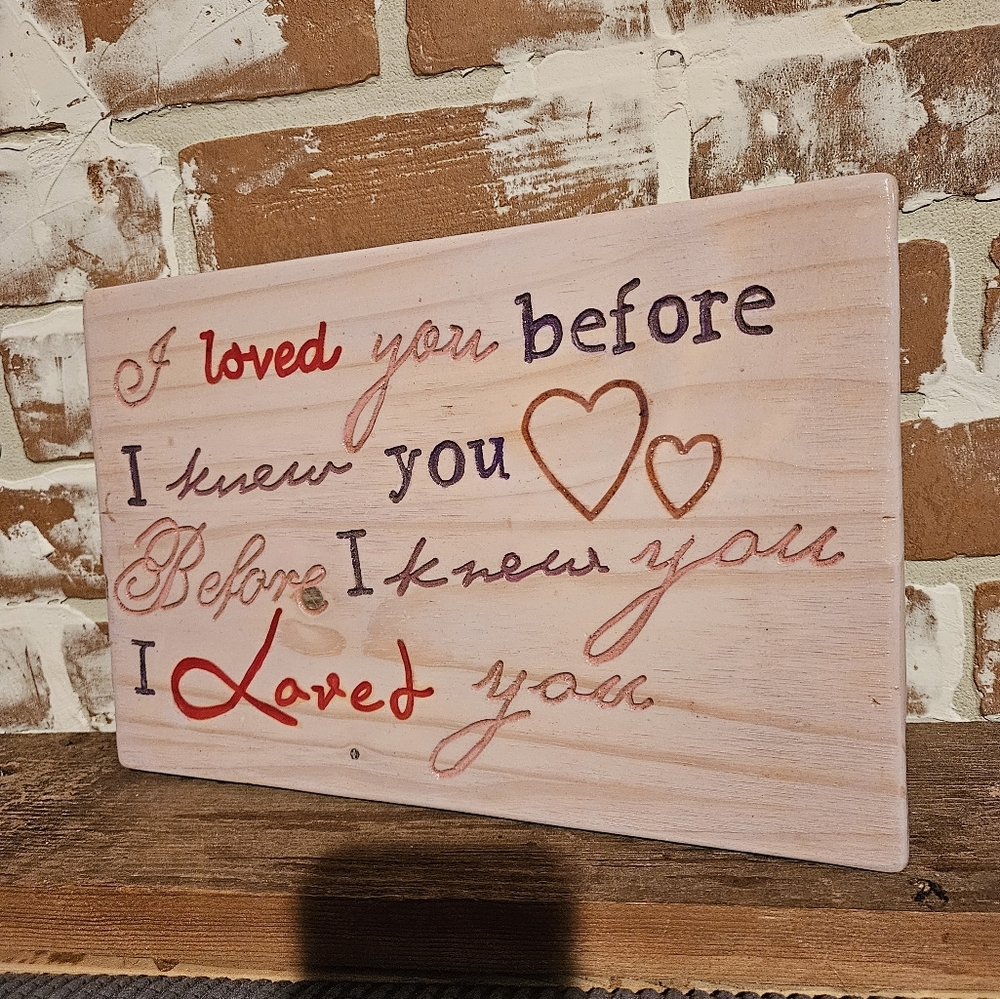 I loved you before
I knew you
Before I knew you
I Loved you